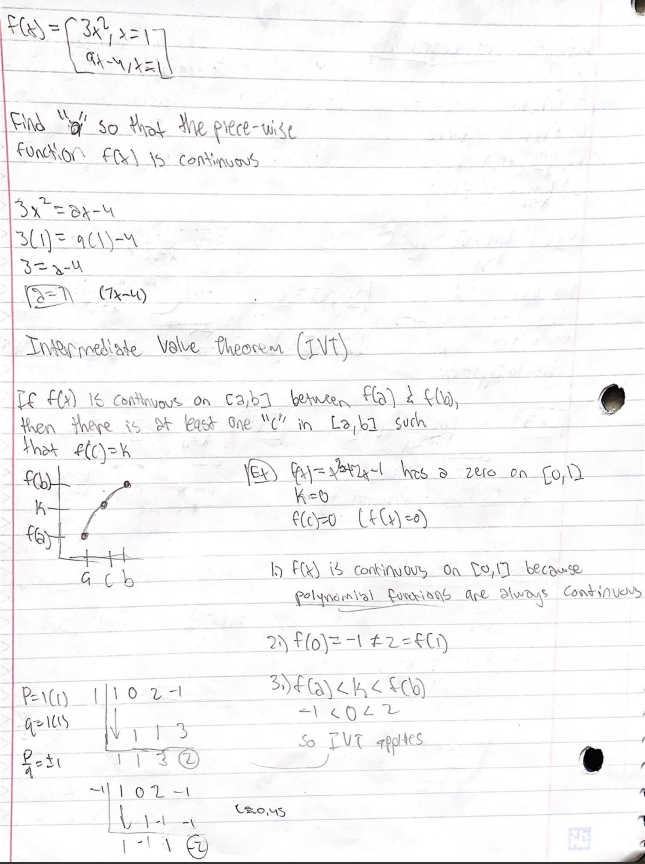 f(x) = [ 3x², x=1
ax-4, x=1 ]
Find "a" so that the piece-wise
function f(x) is continuous
3x² = ax-4
3(1) = a(1)-4
3 = a-4
a=7 (7x-4)
Intermediate Value Theorem (IVT)
If f(x) is continuous on [a,b] between f(a) & f(b),
then there is at least one "c" in [a,b] such
that f(c)=k
f(b)
k
f(a)
a c b
Ex) f(x)=x³+2x-1 has a zero on [0,1]
k=0
f(c)=0 (f(x)=0)
1.) f(x) is continuous on [0,1] because
polynomial functions are always continuous
2.) f(0)=-1 ≠ 2=f(1)
3.) f(a) < k < f(b)
-1 < 0 < 2
so IVT applies
P=1(1)
q=1(1)
p/q = ±1
1 | 1 0 2 -1
1 1 3
1 1 3 2
-1 | 1 0 2 -1
1 -1 -1
1 -1 1 -2
c≈0.45